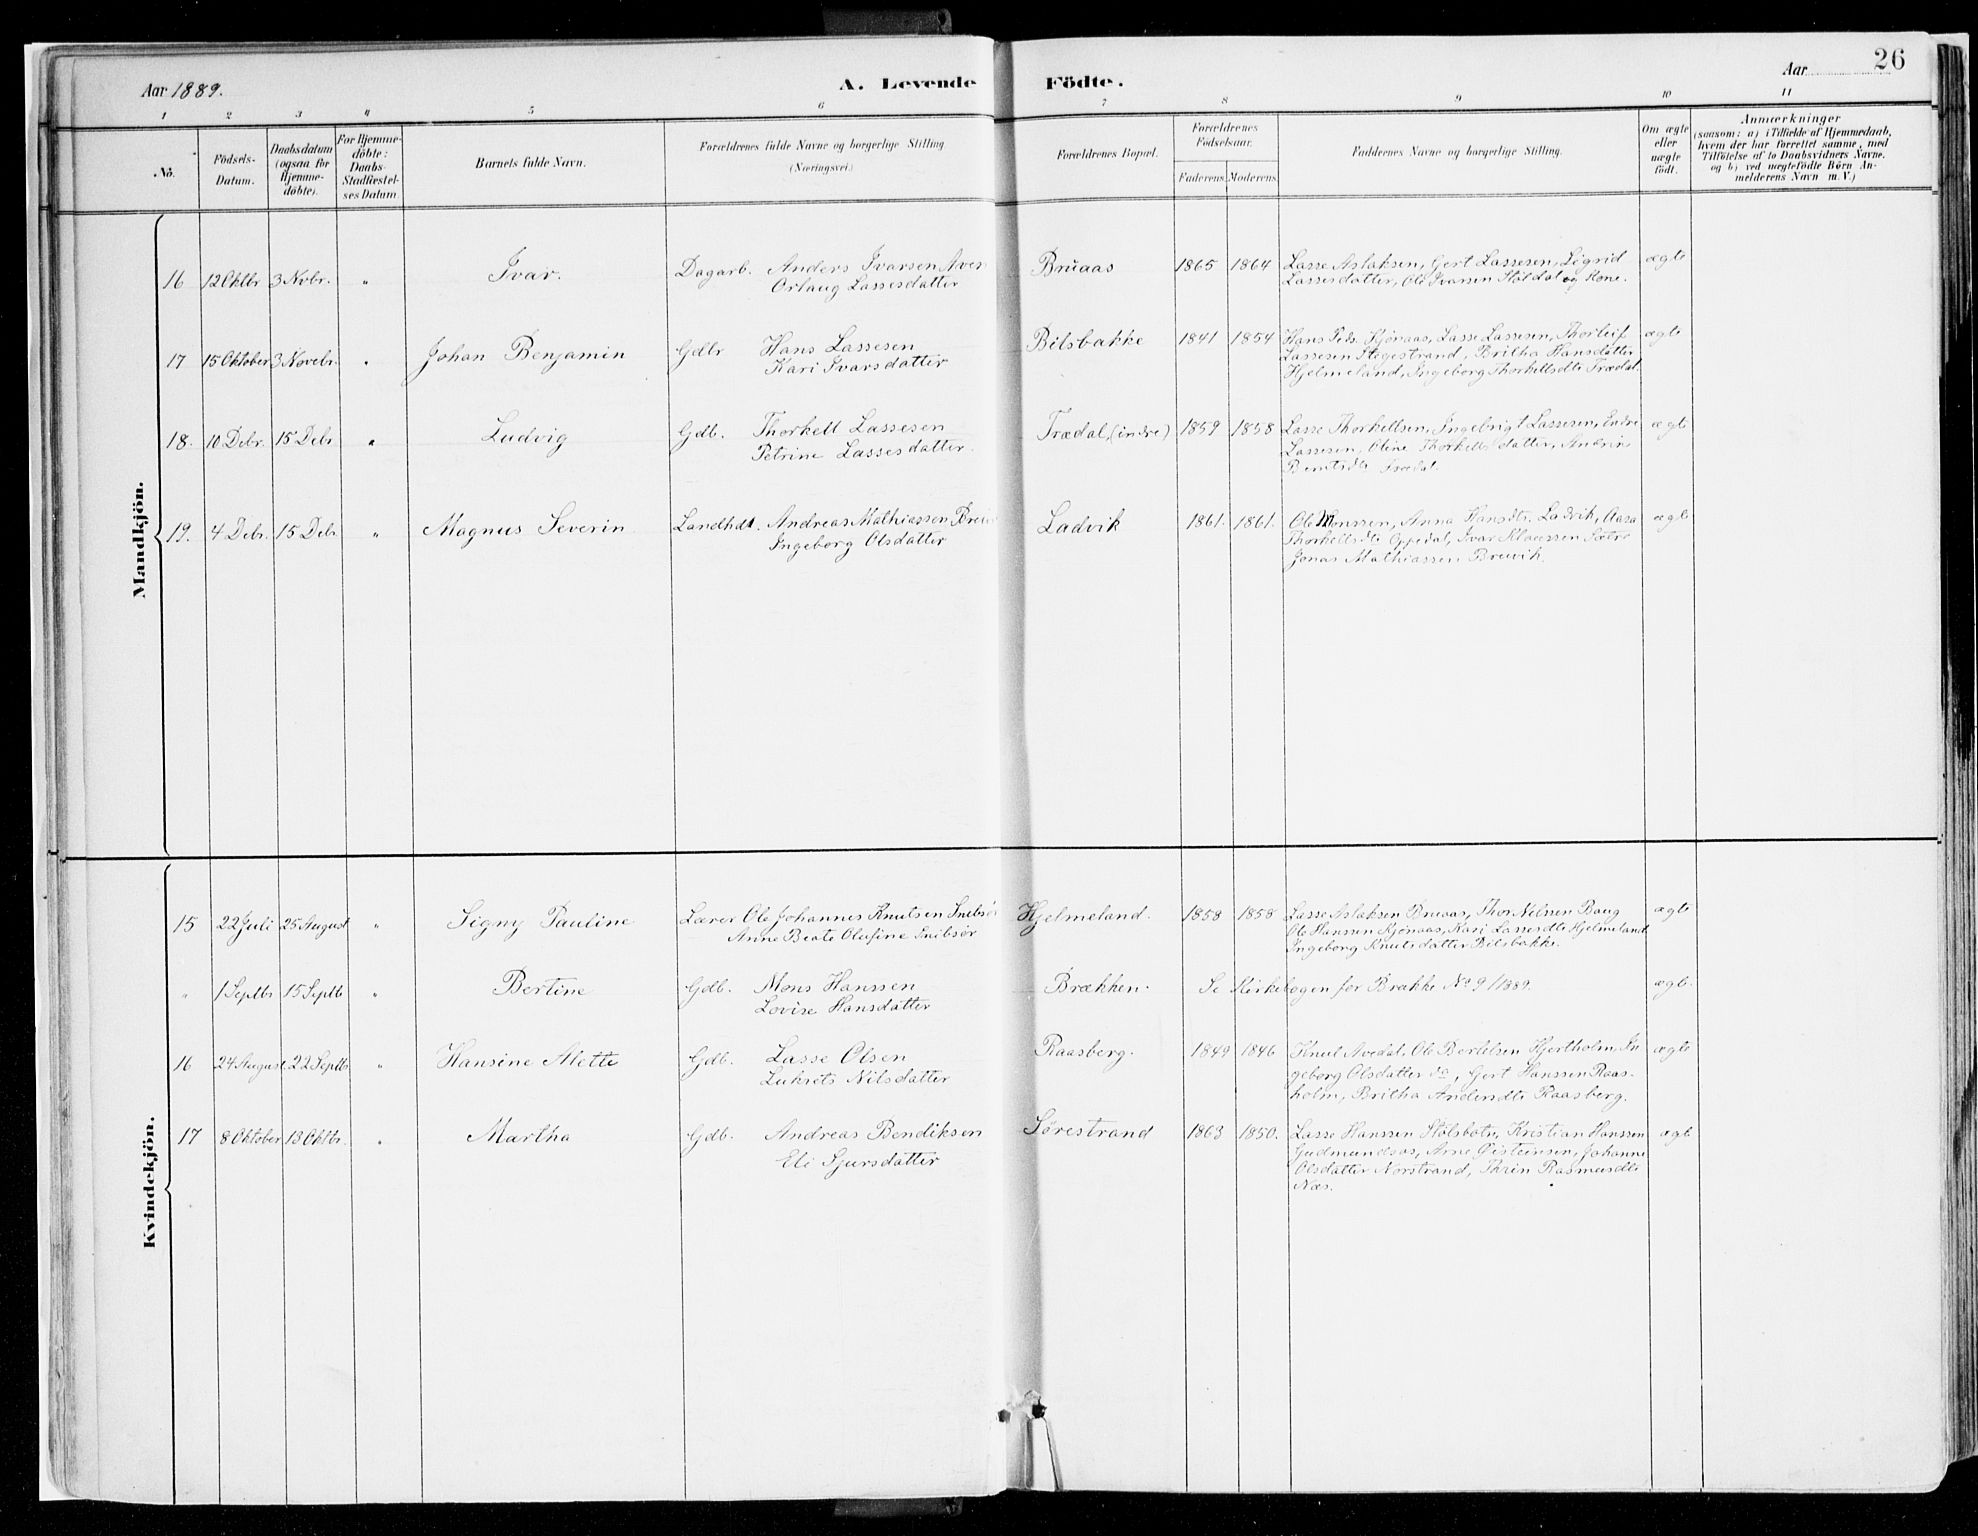 Aar 1889.
A. Levende Födte.
Aar
26
1 2 3 4 5 6 7 8 9 10 11
No.
Födsels-Datum.
Daabsdatum (ogsaa for Hjemmedöbte).
For Hjemmedöbte: Daabs-Stadfæstelses Datum.
Barnets fulde Navn.
Forældrenes fulde Navne og borgerlige Stilling (Næringsvei.)
Forældrenes Bopæl.
Forældrenes Födselsaar.
Faderens. Moderens.
Faddernes Navne og borgerlige Stilling.
Om ægte eller uægte födt.
Anmærkninger
(saasom: a) i Tilfælde af Hjemmedaab, hvem der har forrettet samme, med Tilföielse af to Daabsvidners Navne. og b) ved uægtefödte Börn Anmelderens Navn m. V.)
Mandkjön.
16 12 Oktbr 3 Novbr. " Ivar. Dagarb. Anders Ivarsen Bruaas 1865 1864 Lasse Aslaksen, Gert Lassesen, Sigrid ægte
Orlaug Lassesdatter Lassesdatter, Ole Ivarsen Stöldal og Kone.
17 15 Oktober 3 Novebr. " Johan Benjamin Gdbr Hans Lassesen Bilsbakke 1841 1854 Hans Peds. Kjönaas, Lasse Lassesen, Thorleif ægte
Kari Ivarsdatter Lassesen Stegestrand, Britha Hansdatter
Hjelmeland, Ingeborg Thorkellsdtr Trædal.
18. 10 Debr. 15 Debr " Ludvig Gdb. Thorkell Lassesen Trædal, (indre) 1859 1858 Lasse Thorkellsen, Ingebrigt Lassesen, Endre ægte
Petrine Lassesdatter. Lassesen, Oline Thorkellsdatter,
Berntsdtr Trædal.
19. 4 Debr. 15 Debr " Magnus Severin Landhdl. Andreas Mathiassen Ladvik 1861. 1861. Ole Monssen, Anna Hansdtr Ladvik, Aasa ægte
Ingeborg Olsdatter Thorkellsdtr Oppedal, Ivar Klaessen Sætre
Jonas Mathiassen Breivik.
Kvindekjön.
15 22 Juli 25 August " Signy Pauline Lærer Ole Johannes Knutsen Snibsör Hjelmeland. 1858 1858 Lasse Aslaksen Bruaas, Thor Nilssen Baug ægte
Anne Beate Olufine Snibsör Ole Hanssen Kjönaas, Kari Lassesdtr Hjelmeland
Ingeborg Knutsdatter Bilsbakke.
" 1 Septbr 15 Septb " Bertine Gdb. Mons Hanssen Brækken. Se Kirkebogen for Brække No 9/1889. ægte.
Lovise Hansdatter
16 24 August 22 Septb " Hansine Alette Gdb. Lasse Olsen Raasberg. 1849 1846 Knut Avedal, Ole Bertelsen Hjertholm, In ægte
Lukrets Nilsdatter geborg Olsdatter do, Gert Hanssen Raas-
holm, Britha Andersdtr Raasberg.
17 8 Oktober 13 Oktbr. " Martha Gdb. Andreas Bendiksen Sørestrand 1863 1850. Lasse Hanssen Stølsbotn, Kristian Hanssen ægte
Eli Sjursdatter Gudmundsøs, Arne Øisteinsen, Johanne
Olsdatter Norstrand, Thrin Rasmusdtr
Næs.